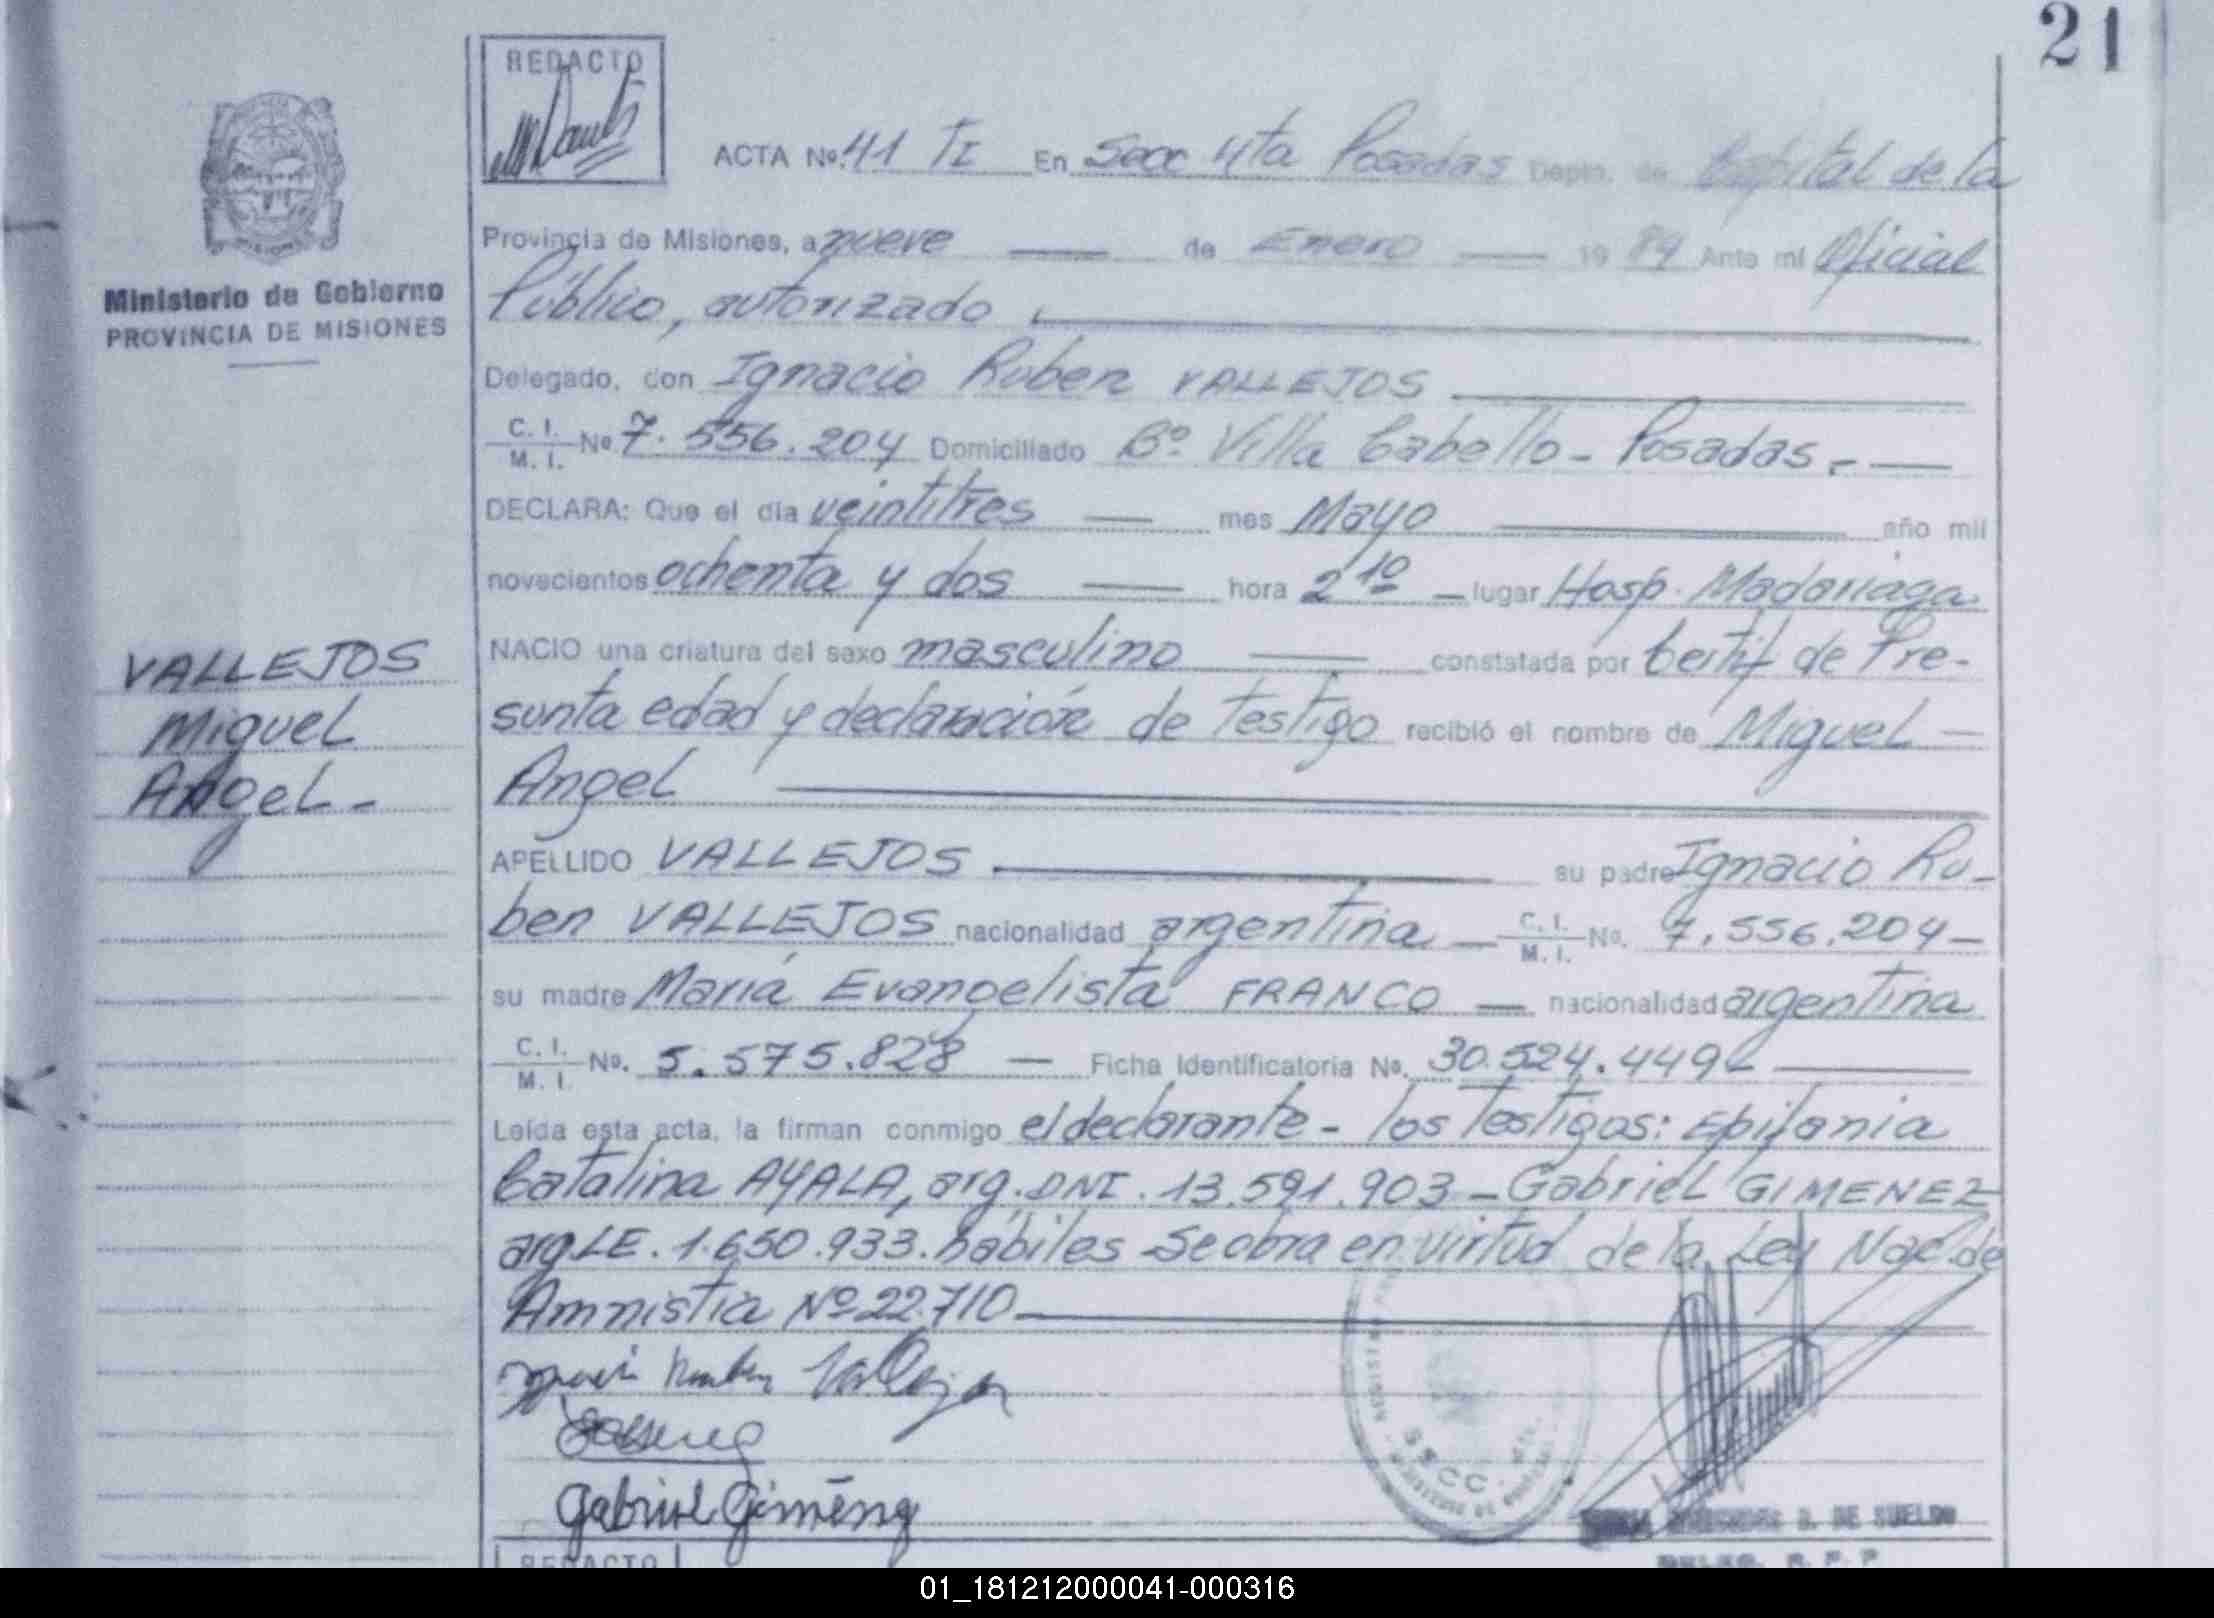 21
REDACTO
ACTA No. 41 TI En Secc 4ta Posadas Depto. de Capital de la
Provincia de Misiones, a nueve de Enero 1989 Ante mi Oficial
Ministerio de Gobierno
PROVINCIA DE MISIONES
Público, autorizado
Delegado, don Ignacio Ruben VALLEJOS
C. I. M. I. No 7.556.204 Domiciliado Bº Villa Cabello - Posadas.-
DECLARA: Que el día veintitres mes Mayo año mil
novecientos ochenta y dos hora 2 10 lugar Hosp. Madariaga
NACIO una criatura del sexo masculino constatada por Certif de Pre-
sunta edad y declaración de testigo recibió el nombre de Miguel
Angel
VALLEJOS
Miguel
Angel-
APELLIDO VALLEJOS su padre Ignacio Ru-
ben VALLEJOS nacionalidad argentina C. I. M. I. No. 7.556.204-
su madre María Evangelista FRANCO nacionalidad argentina
C. I. M. I. No. 5.575.828 Ficha Identificatoria No. 30.524.449
Leída esta acta, la firman conmigo el declarante - los Testigos: Epifania
Catalina AYALA, arg. DNI. 13.591.903 - Gabriel GIMENEZ
arg LE. 1.650.933. hábiles Se obra en virtud de la Ley Nac. de
Amnistia Nº 22.710
Gabriel Giménez
SSCC.
D. DE SUELDO
DELEG. R. P. P
REDACTO
01_181212000041-000316